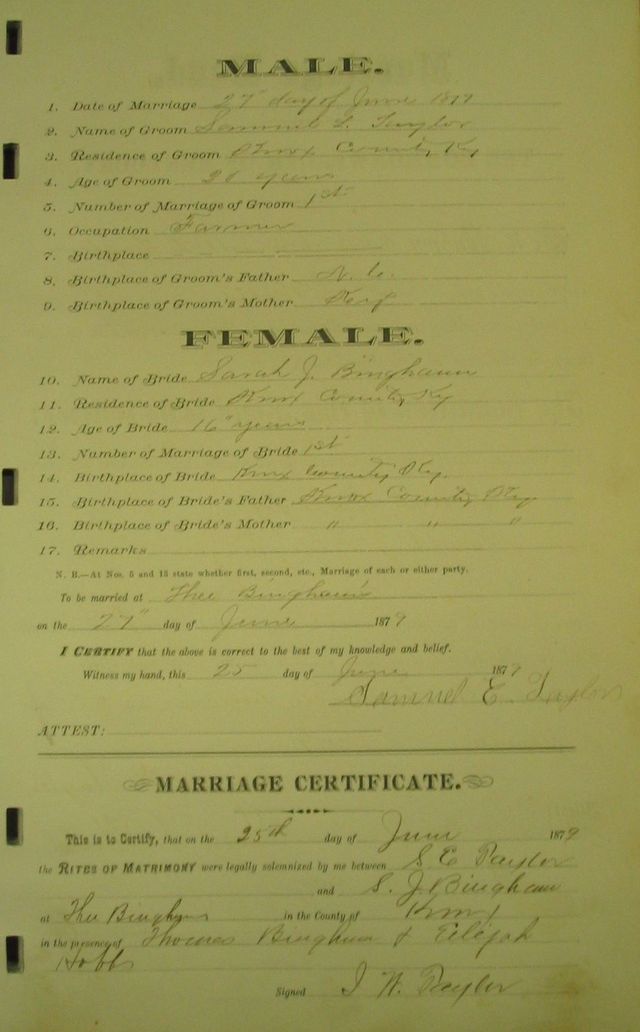 MALE.
1. Date of Marriage 27" day of June 1879
2. Name of Groom Samuel E. Taylor
3. Residence of Groom Knox County Ky
4. Age of Groom 20 years
5. Number of Marriage of Groom 1st
6. Occupation Farmer
7. Birthplace
8. Birthplace of Groom's Father N. C.
9. Birthplace of Groom's Mother
FEMALE.
10. Name of Bride Sarah J. Bingham
11. Residence of Bride Knox County Ky
12. Age of Bride 16" years
13. Number of Marriage of Bride 1st
14. Birthplace of Bride Knox County Ky.
15. Birthplace of Bride's Father Knox County Ky.
16. Birthplace of Bride's Mother " " "
17. Remarks
N. B.—At Nos. 5 and 13 state whether first, second, etc., Marriage of each or either party.
To be married at Thee Bingham's
on the 27" day of June 1879
I CERTIFY that the above is correct to the best of my knowledge and belief.
Witness my hand, this 25 day of June 1879
Samuel E. Taylor
ATTEST:
MARRIAGE CERTIFICATE.
This is to Certify, that on the 25th day of June 1879
the RITES OF MATRIMONY were legally solemnized by me between S E Taylor
and S. J. Bingham
at Thee Bingham in the County of Knox
in the presence of Thomas Bingham & Elijah
Hobbs
Signed J W. Taylor